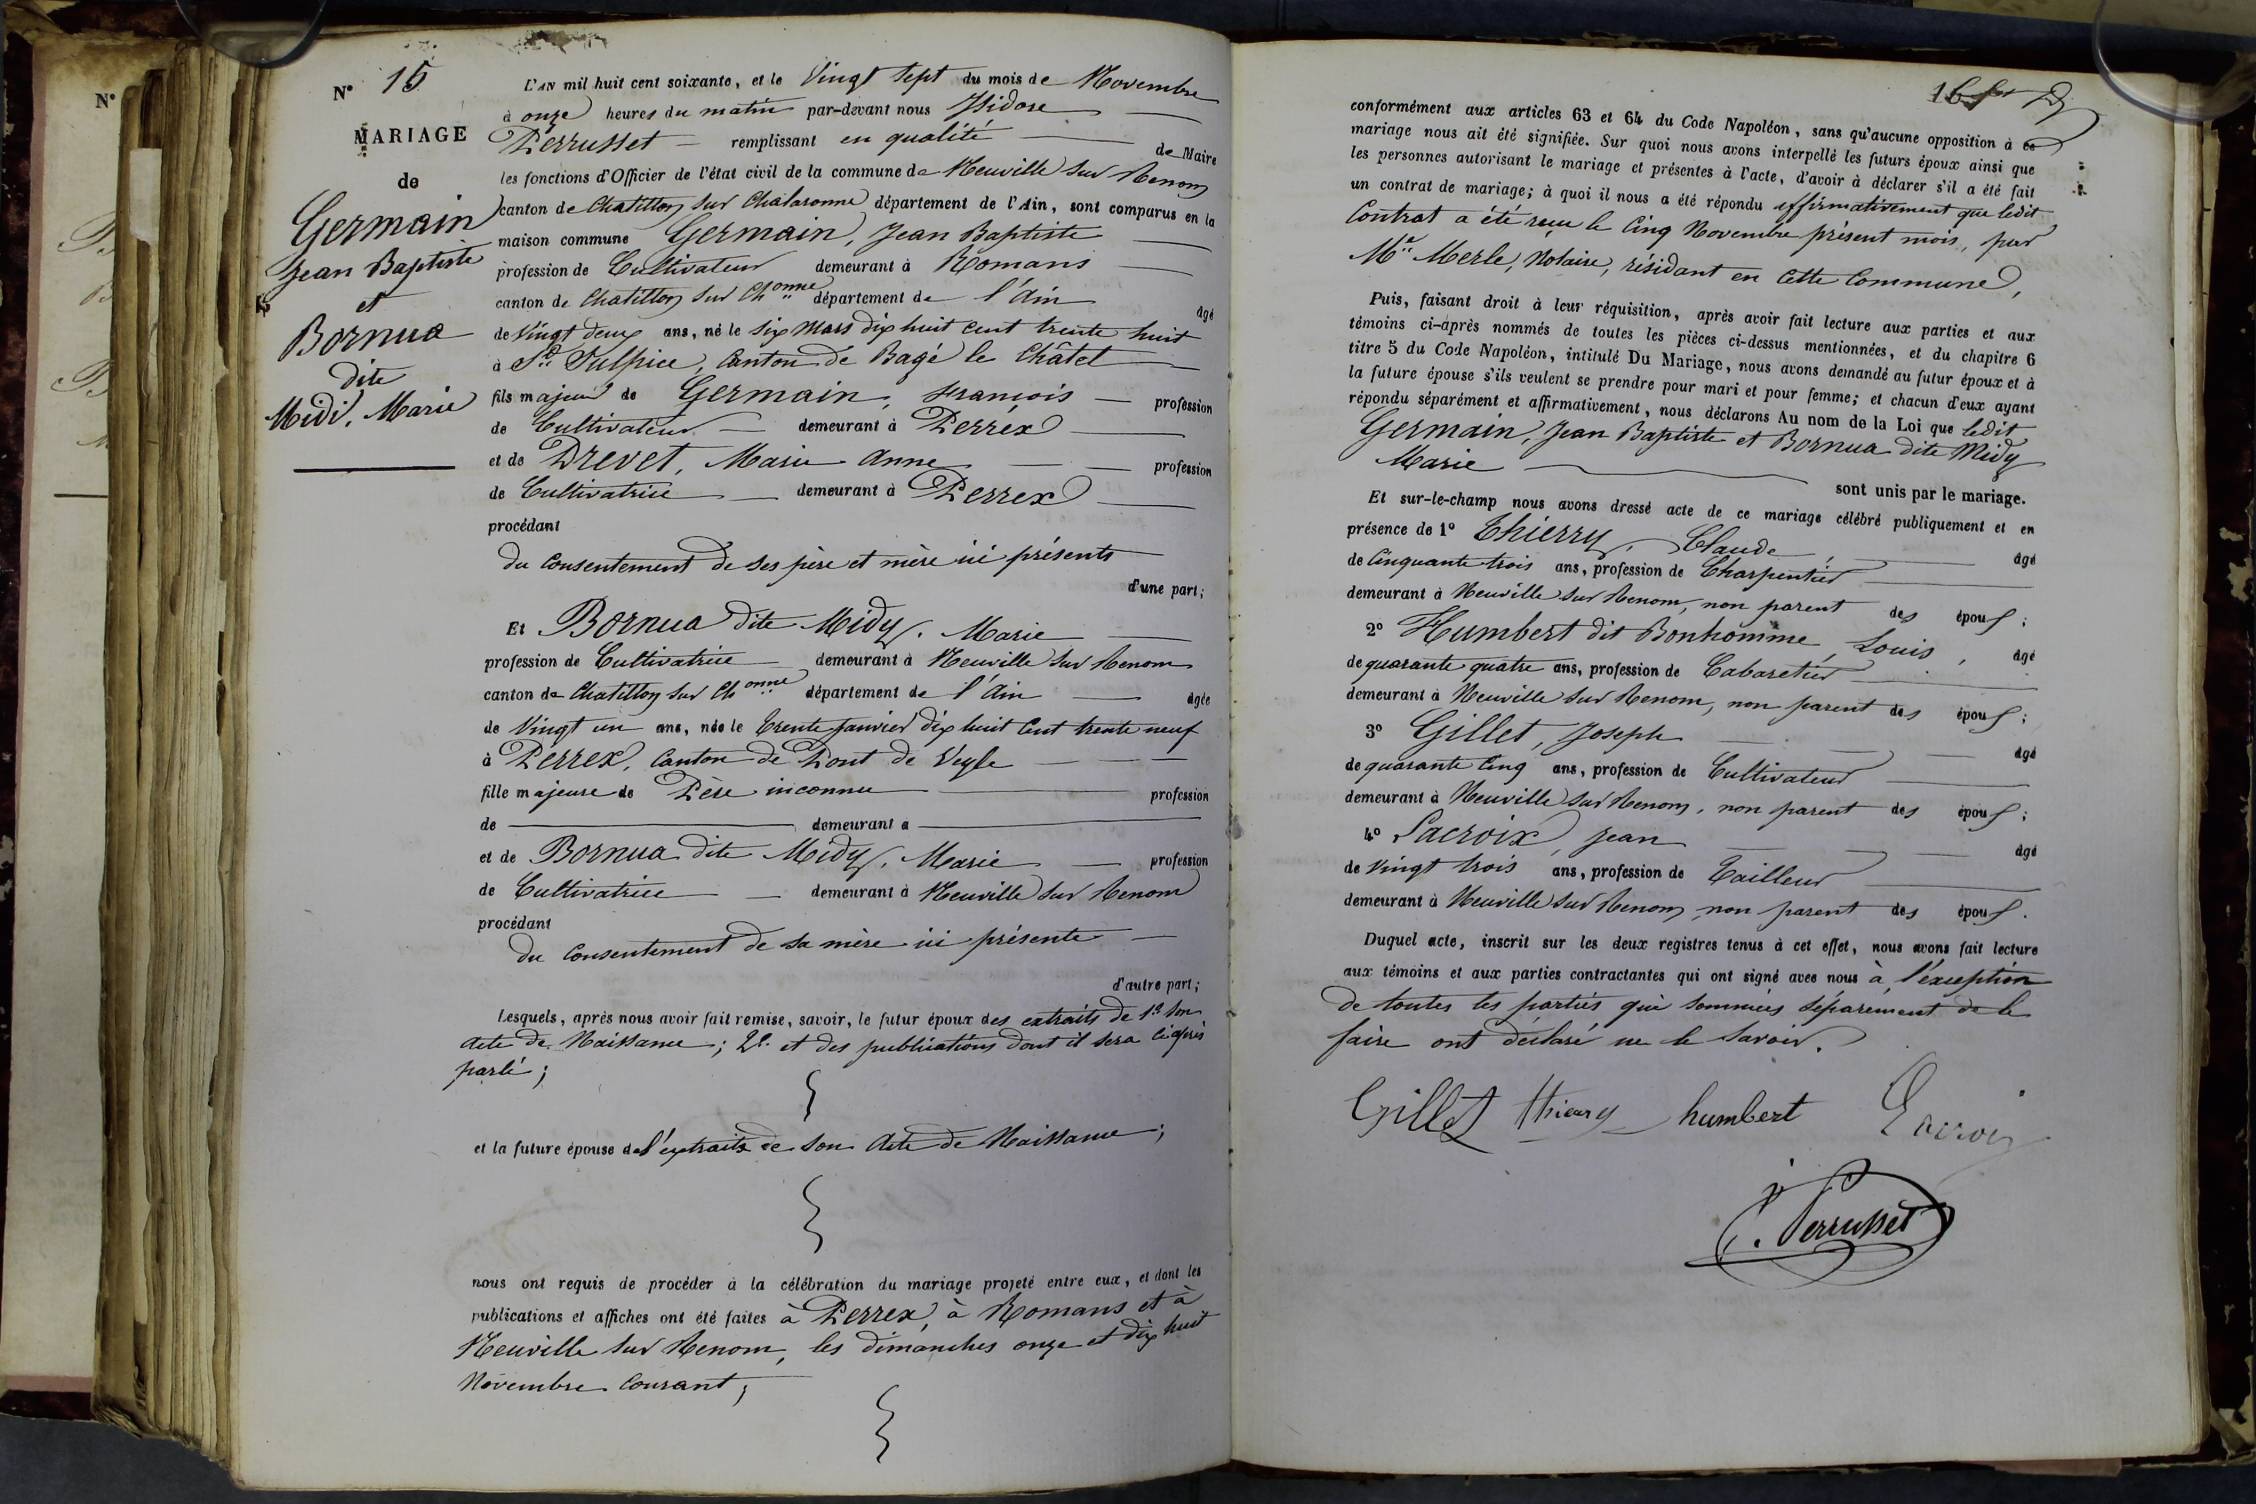 N° 15
MARIAGE
de
Germain
Jean Baptiste
et
Bornua
dite
Midi, Marie
L'AN mil huit cent soixante, et le Vingt Sept du mois de Novembre
à onze heures du matin par-devant nous Isidore
Perrusset remplissant en qualité de Maire
les fonctions d'Officier de l'état civil de la commune de Neuville sur Renom
canton de Chatillon sur Chalaronne département de l'Ain, sont comparus en la
maison commune Germain, Jean Baptiste
profession de Cultivateur demeurant à Romans
canton de Chatillon sur Chonne département de l'Ain âgé
de Vingt deux ans, né le six Mars dix huit cent trente huit
à St Sulpice, Canton de Bagé le Châtel
fils majeur de Germain, François profession
de Cultivateur demeurant à Perrex
et de Drevet, Marie Anne profession
de Cultivatrice demeurant à Perrex
procédant
du consentement de ses père et mère ici présents
d'une part;
Et Bornua dite Midy, Marie
profession de Cultivatrice demeurant à Neuville sur Renom
canton de Chatillon sur Chonne département de l'Ain âgée
de Vingt un ans, née le trente Janvier dix huit Cent trente neuf
à Perrex, Canton de Pont de Veyle
fille majeure de Père inconnu profession
de demeurant à
et de Bornua dite Midy, Marie profession
de Cultivatrice demeurant à Neuville sur Renom
procédant
du consentement de sa mère ici présente
d'autre part;
Lesquels, après nous avoir fait remise, savoir, le futur époux des extraits de 1° son
acte de Naissance; 2° et des publications dont il sera ci après
parlé;
et la future épouse de l'extrait de son Acte de Naissance;
nous ont requis de procéder à la célébration du mariage projeté entre eux, et dont les
publications et affiches ont été faites à Perrex, à Romans et à
Neuville sur Renom, les dimanches onze et dix huit
Novembre Courant;
conformément aux articles 63 et 64 du Code Napoléon, sans qu'aucune opposition à ce
mariage nous ait été signifiée. Sur quoi nous avons interpellé les futurs époux ainsi que
les personnes autorisant le mariage et présentes à l'acte, d'avoir à déclarer s'il a été fait
un contrat de mariage; à quoi il nous a été répondu affirmativement que ledit
Contrat a été reçu le Cinq Novembre présent mois, par
Me Merle, Notaire, résidant en Cette Commune,
Puis, faisant droit à leur réquisition, après avoir fait lecture aux parties et aux
témoins ci-après nommés de toutes les pièces ci-dessus mentionnées, et du chapitre 6
titre 5 du Code Napoléon, intitulé Du Mariage, nous avons demandé au futur époux et à
la future épouse s'ils veulent se prendre pour mari et pour femme; et chacun d'eux ayant
répondu séparément et affirmativement, nous déclarons Au nom de la Loi que ledit
Germain, Jean Baptiste et Bornua dite Midy
Marie
sont unis par le mariage.
Et sur-le-champ nous avons dressé acte de ce mariage célébré publiquement et en
présence de 1° Thierry, Claude, âgé
de Cinquante trois ans, profession de Charpentier
demeurant à Neuville sur Renom, non parent des épous;
2° Humbert dit Bonhomme, Louis, âgé
de quarante quatre ans, profession de Cabaretier
demeurant à Neuville sur Renom, non parent des épous;
3° Gillet, Joseph âgé
de quarante Cinq ans, profession de Cultivateur
demeurant à Neuville sur Renom, non parent des épous;
4° Lacroix, Jean âgé
de Vingt trois ans, profession de Tailleur
demeurant à Neuville sur Renom, non parent des épous.
Duquel acte, inscrit sur les deux registres tenus à cet effet, nous avons fait lecture
aux témoins et aux parties contractantes qui ont signé avec nous à l'exception
de toutes les parties qui sommées séparement de le
faire ont déclaré ne le savoir.
Gillet thierry humbert Lacroix
J. Perrusset